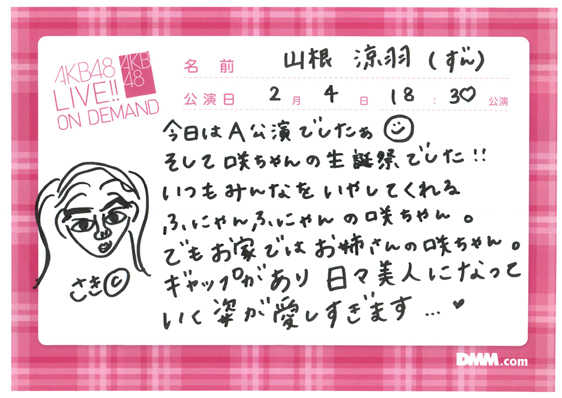 AKB48
LIVE!!
ON DEMAND
AKB
48
名前 山根 涼羽 (ずん)
公演日 2月 4日 18:30 公演
今日はA公演でしたぁ
そして咲ちゃんの生誕祭でした!!
いつもみんなをいやしてくれる
ふにゃんふにゃんの咲ちゃん。
でもお家ではお姉さんの咲ちゃん。
ギャップがあり 日々美人になって
いく姿が愛しすぎます…♥
DMM.com